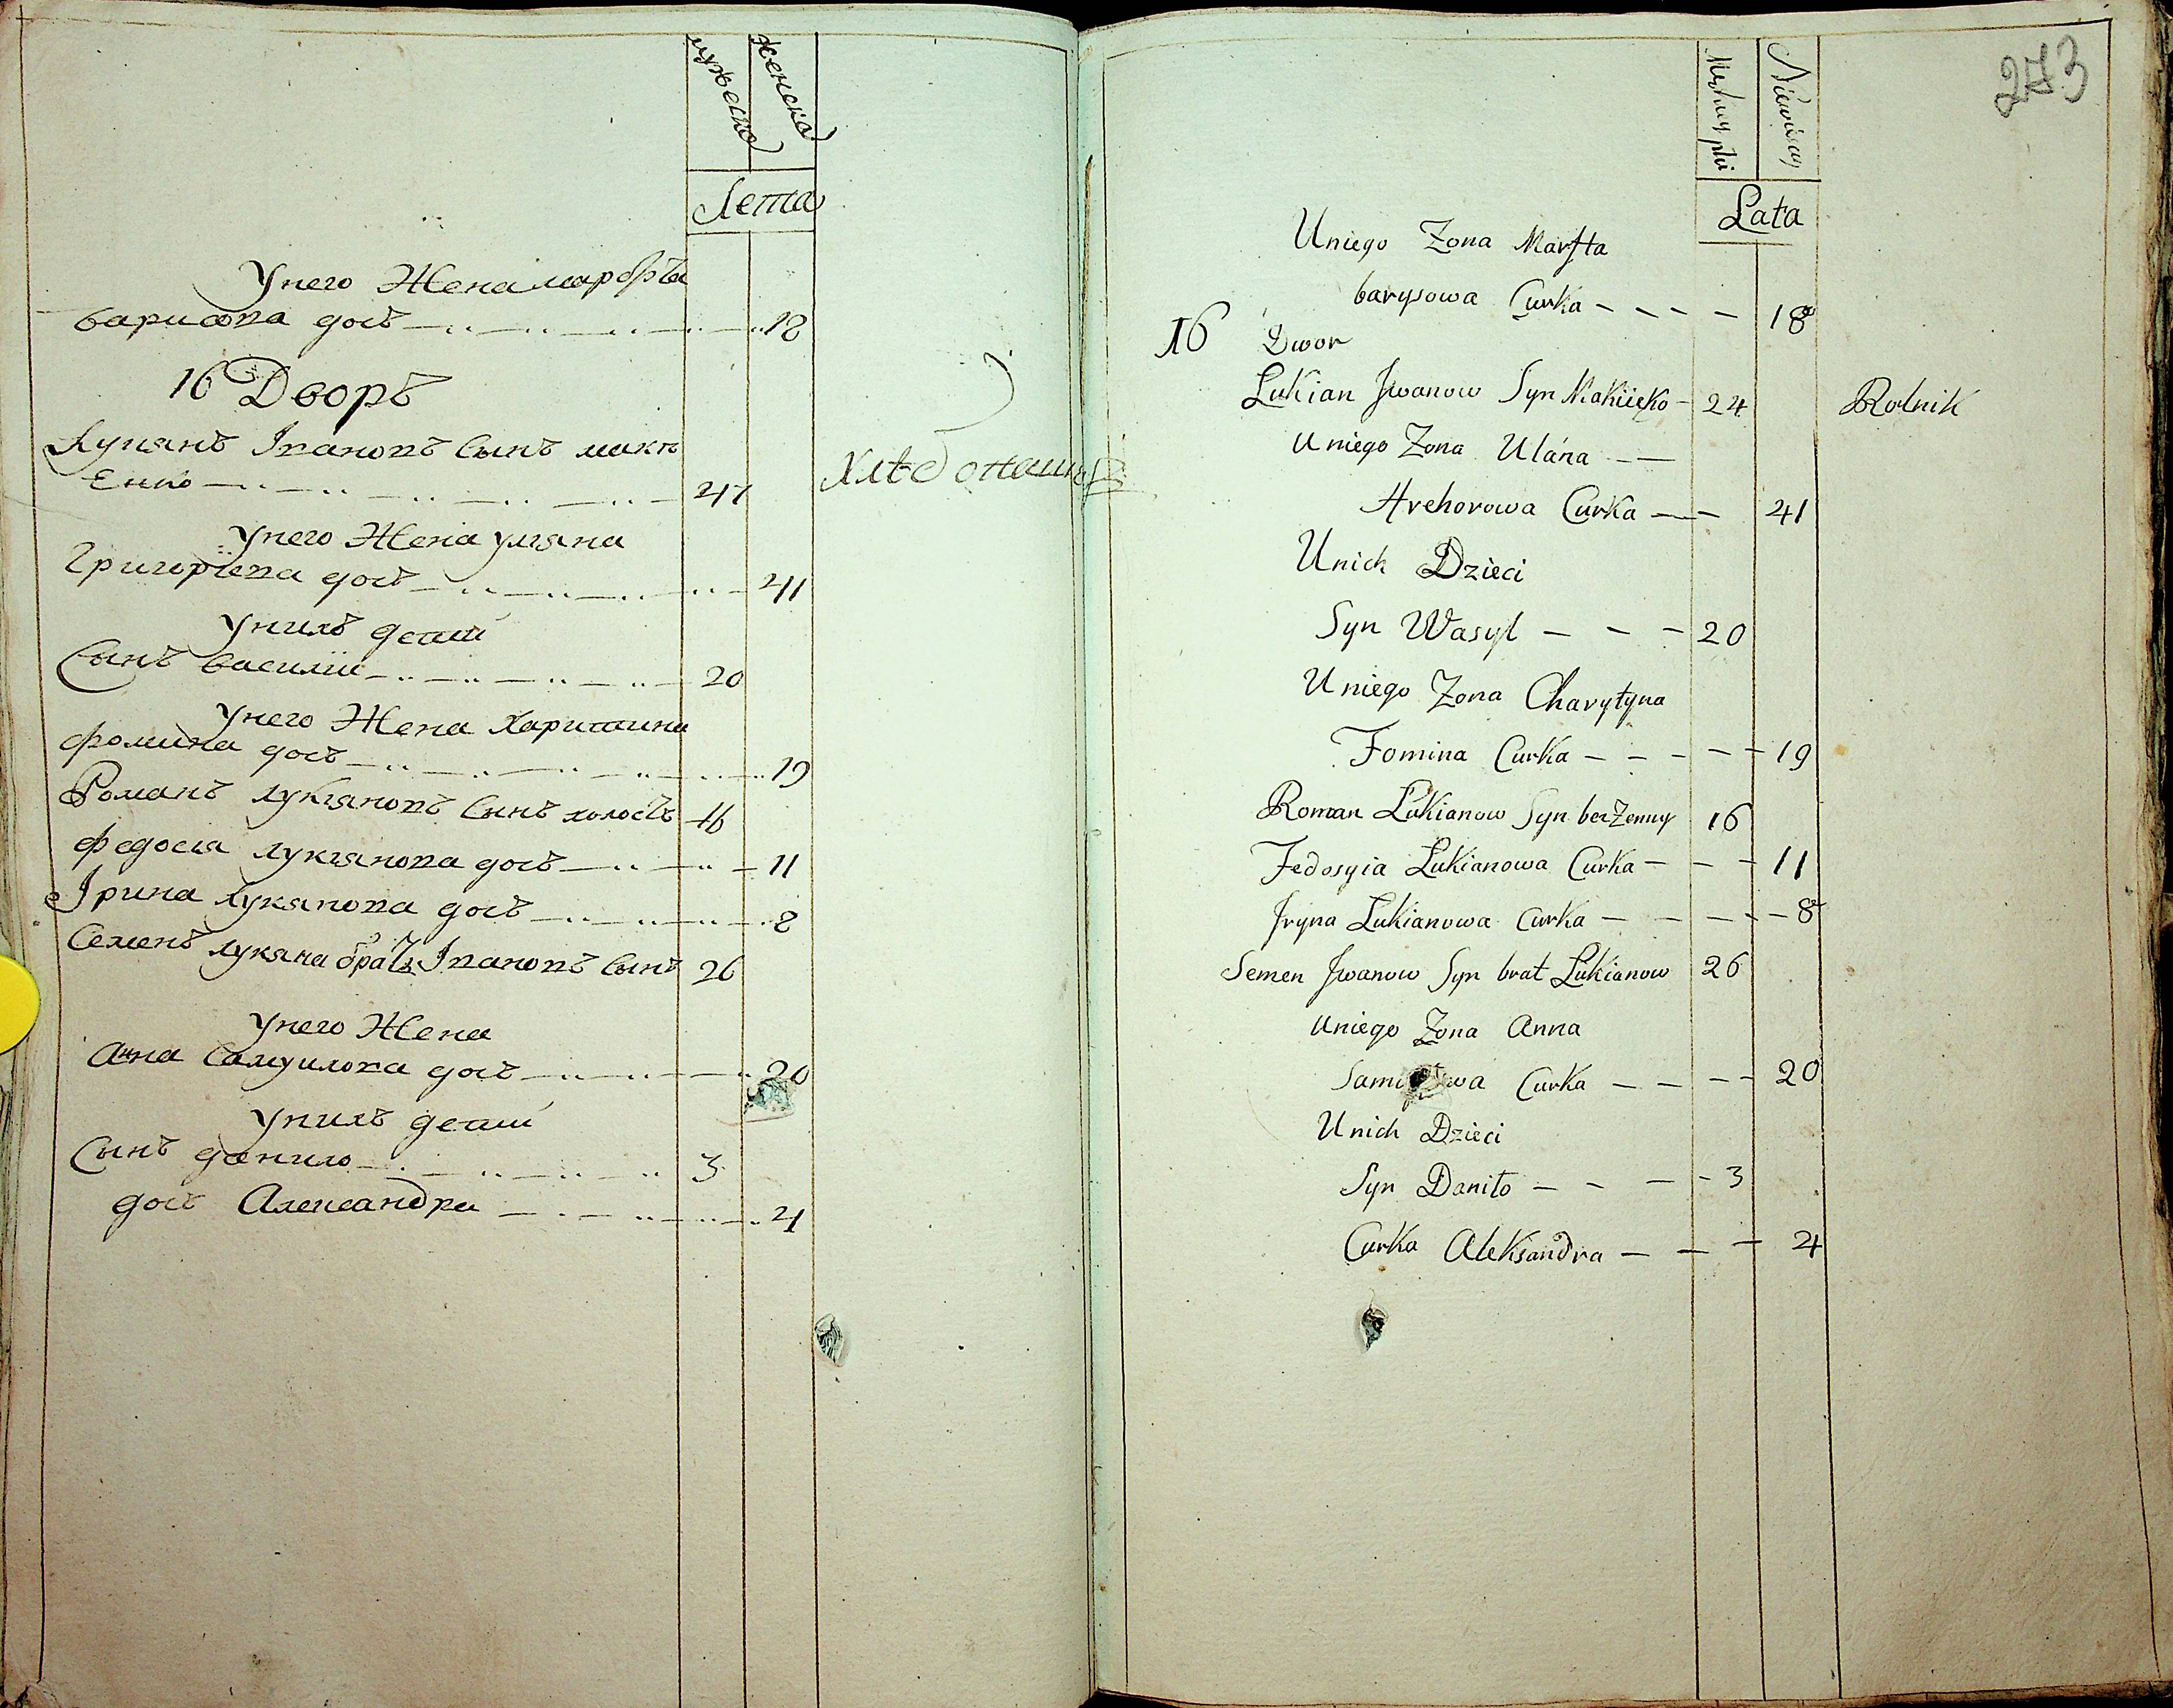 мужеска
женска
Лета
Унего Жена марѳѣа
барисова дочъ 18
16 Дворъ
Лукянъ Івановъ Сынъ маки
Енко 47
хлѣбопашецъ
Унего Жена уляна
Григорїева дочъ 41
Унихъ дети
Сынъ василїи 20
Унего Жена Харитина
фомина дочъ 19
Романъ лукїяновъ Сынъ холостъ 16
федосїя лукїянова дочъ 11
Ірина лукянова дочъ 8
Семенъ лукяна братъ Івановъ Сынъ 26
Унего Жена
Анна Самуилова дочъ 20
Унихъ дети
Сынъ данило 3
дочъ Александра 4
273
Lata
Uniego Zona Marfta
barysowa Curka 18
16 Dwor
Lukian Jwanow Syn Makiieko 24 Rolnik
Uniego Zona Ulána
Hrehorowa Curka 41
Unich Dzieci
Syn Wasyl 20
Uniego Zona Charytyna
Fomina Curka 19
Roman Lukianow Syn bezZenny 16
Fedosyia Lukianowa Curka 11
Jryna Lukianowa Curka 8
Semen Jwanow Syn brat Lukianow 26
Uniego Zona Anna
Curka 20
Unich Dzieci
Syn Daniło 3
Curka Aleksandra 4